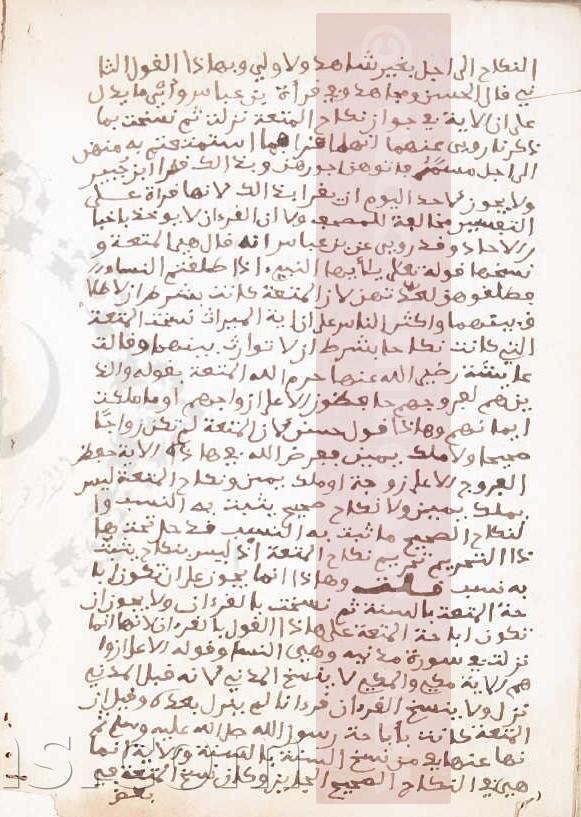 النكاح الى اجل بغير شاهد ولا ولي وبهاذا القول الثا
ني قال الحسن ومجاهد وفي قراة بن عباس وأبي ما يدل
على ان الاية في جواز نكاح المتعة نزلت ثم نسخت بما
ذكرنا روي عنهما انهما قرءا فما استمتعتم به منهن
الى اجل مسمى فـاتوهن اجورهن وبذالك قرا ابن جبير
ولا يجوز لاحد اليوم ان يقرا بذالك لانها قراة على
التفسير مخالفة للمصحف ولان القرءان لا يوخذ باخبا
ر الاحاد وقد روي عن بن عباس انه قال هي المتعة و
نسخها قوله تعلى يـأيها النبيء اذا طلقتم النساء
فطلقوهن لعدتهن لان المتعة كانت بشرط ان لا طلا
ق بينهما واكثر الناس على ان اية الميراث نسخت المتعة
التي كانت نكاحا بشرط ان لا توارث بينهما وقالت
عايشة رضي الله عنها حرم الله المتعة بقوله والذ
ين هم لفروجهم حـفظون الا على ازواجهم او ما ملكت
ايمانهم وهاذا قول حسن لان المتعة لم تكن زواجا
صحيحا ولا ملك يمين ففرض الله في هاذه الاية حفظ
الفروج الا على زوجة او ملك يمين ونكاح المتعة ليس
بملك يمين ولا نكاح صحيح يثبت به النسب وا
لنكاح الصحيح ما ثبت به النسب فدخل تحت ها
ذا التحريم تحريم نكاح المتعة اذ ليس بنكاح يثبت
به نسب قلت وهاذا انما يجوز على ان تكون ابا
حة المتعة بالسنة ثم نسخت بالقرءان ولا يجوز ان
تكون اباحة المتعة على هاذا القول بالقرءان لانها انما
نزلت في سورة مدنية وهي النساء وقوله الا على ازوا
جهم الاية مكي والمكي لا ينسخ المدني لانه قبل المدني
نزل ولا ينسخ القرءان قرءانا لم ينزل بعده وقيل ان
المتعة كانت بأباحة رسول الله صلى الله عليه وسلم ثم
نها عنها فهو من نسخ السنة بالسنة والاية انما
هي في النكاح الصحيح الجايز وكان نسخ المتعة في
بعض